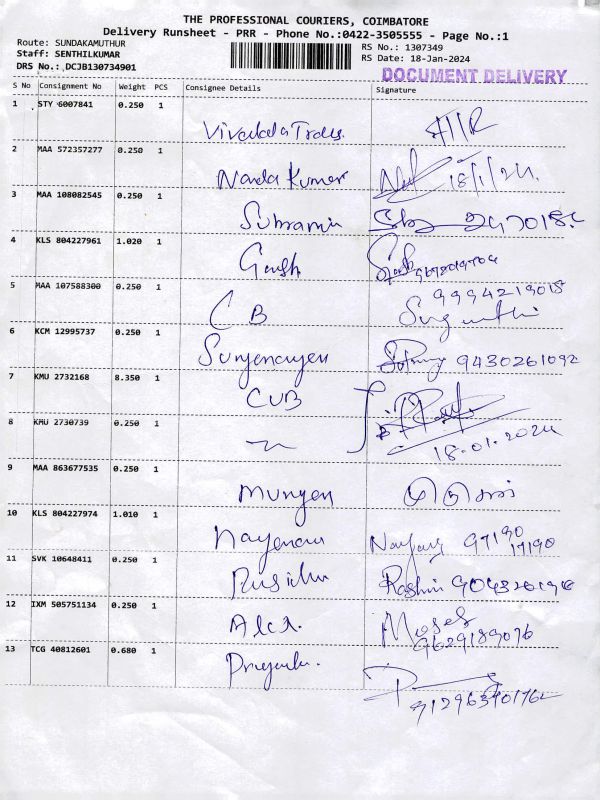 THE PROFESSIONAL COURIERS, COIMBATORE
Delivery Runsheet - PRR - Phone No.:0422-3505555 - Page No.:1
Route: SUNDAKAMUTHUR
RS No.: 1307349
Staff: SENTHILKUMAR
RS Date: 18-Jan-2024
DRS No.: DCJB130734901
DOCUMENT DELIVERY
S No Consignment No Weight PCS Consignee Details Signature
1 STY 6007841 0.250 1
2 MAA 572357277 0.250 1 Nanda Kumar 18/1/24.
3 MAA 108082545 0.250 1
4 KLS 804227961 1.020 1 Gansh
5 MAA 107588300 0.250 1 CB 9994219018
6 KCM 12995737 0.250 1 9430261092
7 KMU 2732168 8.350 1 CUB
8 KMU 2730739 0.250 1 18.01.2024
9 MAA 863677535 0.250 1
10 KLS 804227974 1.010 1 97190
17190
11 SVK 10648411 0.250 1 Rashmi
12 IXM 505751134 0.250 1 Alex. Moses
9629189076
13 TCG 40812601 0.680 1